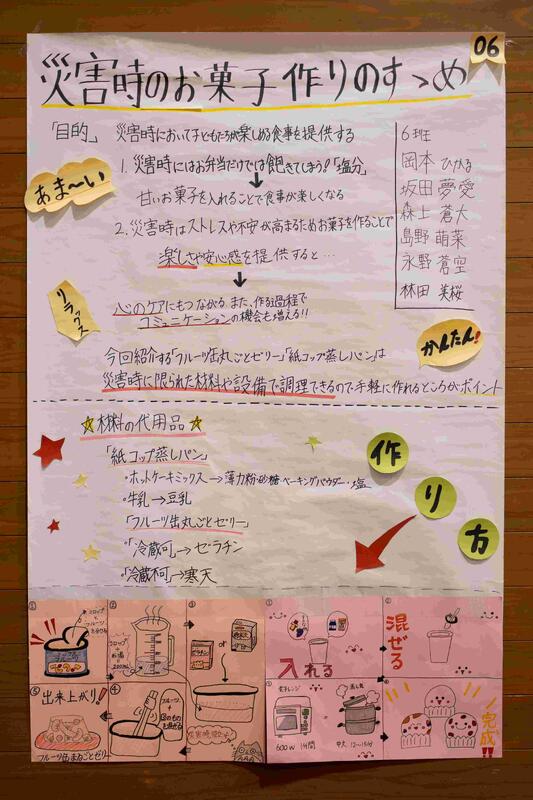 06
災害時のお菓子作りのすゝめ
「目的」 災害時において子どもたちが楽しめる食事を提供する
1. 災害時にはお弁当だけでは飽きてしまう!「塩分」
↓
甘いお菓子を入れることで食事が楽しくなる
2. 災害時はストレスや不安が高まるためお菓子を作ることで
楽しさや安心感を提供すると…
↓
心のケアにもつながる。また、作る過程で
コミュニケーションの機会も増える!!
今回紹介する「フルーツ缶丸ごとゼリー」「紙コップ蒸しパン」は
災害時に限られた材料や設備で調理できるので手軽に作れるところがポイント
あま〜い
リラックス
かんたん!
6班
岡本 ひかる
坂田 夢愛
森上 蒼大
島野 萌菜
永野 蒼空
林田 美桜
☆材料の代用品☆
「紙コップ蒸しパン」
・ホットケーキミックス→薄力粉・砂糖・ベーキングパウダー・塩
・牛乳→豆乳
「フルーツ缶丸ごとゼリー」
・「冷蔵可」→ゼラチン
・「冷蔵不可」→寒天
作り方
①
シロップとフルーツを分ける
②
シロップ+お湯
200ml
③
or
④
フルーツ
③のものを混ぜる
⑤
出来上がり!
フルーツ缶まるごとゼリー
①
入れる
②
混ぜる
③
電子レンジ
600W 1分間
蒸し器
中火 12〜15分
④
完成!!